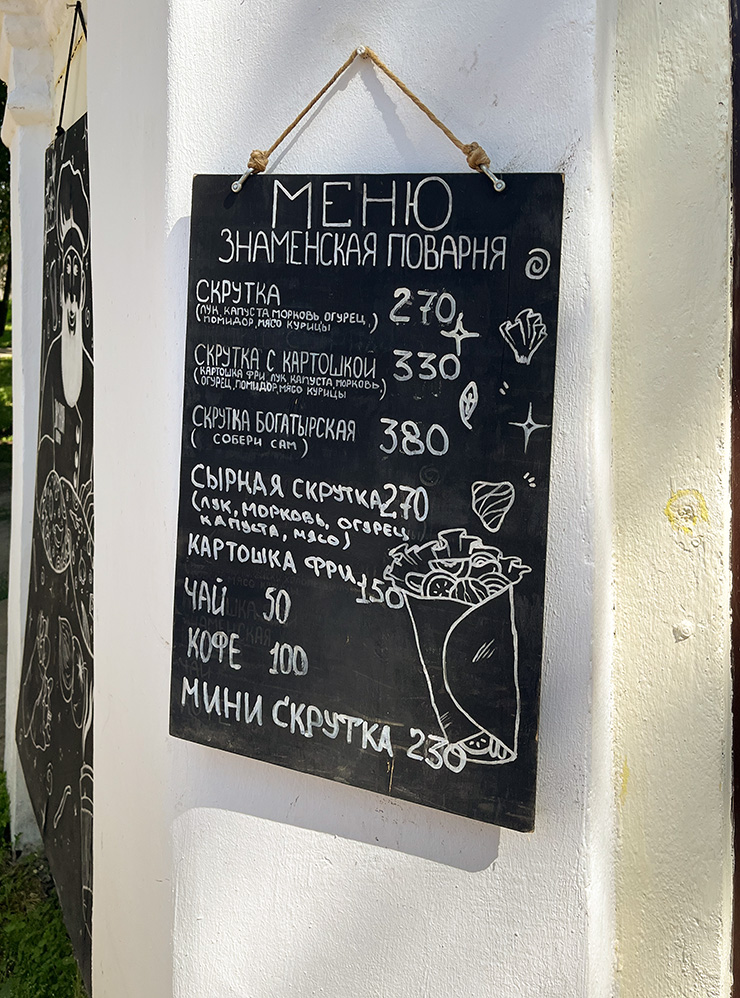 МЕНЮ
ЗНАМЕНСКАЯ ПОВАРНЯ
СКРУТКА 270
(ЛУК, КАПУСТА МОРКОВЬ, ОГУРЕЦ,
ПОМИДОР, МЯСО КУРИЦЫ)
СКРУТКА С КАРТОШКОЙ 330
(КАРТОШКА ФРИ, ЛУК, КАПУСТА, МОРКОВЬ,
ОГУРЕЦ, ПОМИДОР, МЯСО КУРИЦЫ)
СКРУТКА БОГАТЫРСКАЯ 380
( СОБЕРИ САМ )
СЫРНАЯ СКРУТКА 270
(ЛУК, МОРКОВЬ, ОГУРЕЦ,
КАПУСТА, МЯСО)
КАРТОШКА ФРИ 150
ЧАЙ 50
КОФЕ 100
МИНИ СКРУТКА 230